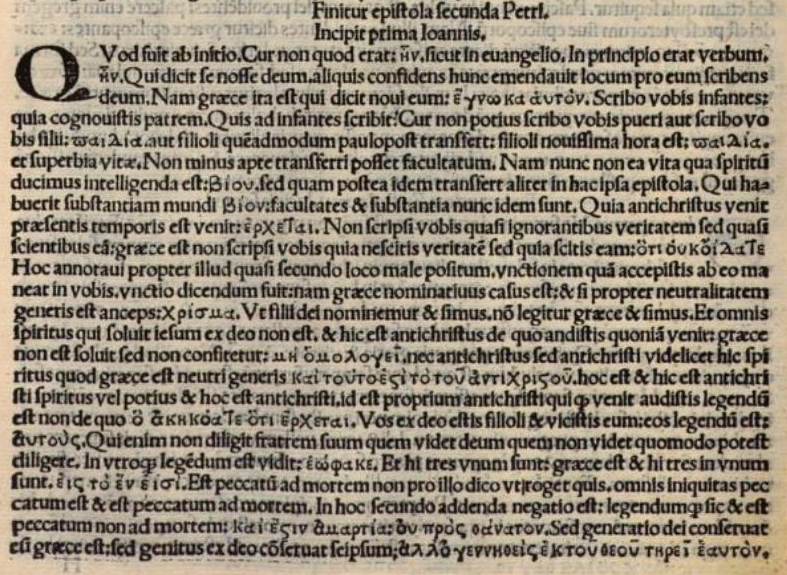 Finitur epistola secunda Petri.
Incipit prima Ioannis.
QVod fuit ab initio. Cur non quod erat: ἦν. sicut in euangelio. In principio erat verbum.
ἦν. Qui dicit se nosse deum. aliquis confidens hunc emendauit locum pro eum scribens
deum. Nam græce ita est qui dicit noui eum: ἔγνωκα ἀυτόν. Scribo vobis infantes:
quia cognouistis patrem. Quis ad infantes scribit? Cur non potius scribo vobis pueri aut scribo vo
bis filii: παιλία. aut filioli quēadmodum paulopost transfert: filioli nouissima hora est: παιλία.
et superbia vitæ. Non minus apte transferri posset facultatum. Nam nunc non ea vita qua spiritū
ducimus intelligenda est: βίου. sed quam postea idem transfert aliter in hac ipsa epistola. Qui ha-
buerit substantiam mundi βίου: facultates & substantia nunc idem sunt. Quia antichristus venit
præsentis temporis est venit: ἐρχεται. Non scripsi vobis quasi ignorantibus veritatem sed quasi
scientibus eā: græce est non scripsi vobis quia nescitis veritatē sed quia scitis eam: ὅτι ὀυκ ὀίλατε
Hoc annotaui propter illud quasi secundo loco male positum. vnctionem quā accepistis ab eo ma
neat in vobis. vnctio dicendum fuit: nam græce nominatiuus casus est: & si propter neutralitatem
generis est anceps: χρίσμα. Vt filii dei nominemur & simus. nō legitur græce & simus. Et omnis
spiritus qui soluit iesum ex deo non est. & hic est antichristus de quo andistis quoniā venit: græce
non est soluit sed non confitetur: μὴ ὁμολογεῖ. nec antichristus sed antichristi videlicet hic spi
ritus quod græce est neutri generis καὶ τοῦτο ἐςὶ τὸ τοῦ ἀντιχρίςου. hoc est & hic est antichri
sti spiritus vel potius & hoc est antichristi. id est proprium antichristi qui ꝙ venit audistis legendū
est non de quo ὃ ἀκηκόατε ὅτι ἔρχεται. Vos ex deo estis filioli & vicistis eum: eos legendū est:
ἀυτούς. Qui enim non diligit fratrem suum quem videt deum quem non videt quomodo potest
diligere. In vtroqꝫ legēdum est vidit: ἑώρακε. Et hi tres vnum sunt: græce est & hi tres in vnum
sunt. ἐις τὸ ἓν ἐισί. Est peccatū ad mortem non pro illo dico vt roget quis. omnis iniquitas pec
catum est & est peccatum ad mortem. In hoc secundo addenda negatio est: legendumqꝫ sic & est
peccatum non ad mortem: καὶ ἔςιν ἁμαρτία: ὀυ πρὸς θάνατον. Sed generatio dei conseruat
eū græce est: sed genitus ex deo cōseruat seipsum; ἀλλ᾽ ὁ γεννηθεὶς ἐκ τοῦ θεοῦ τηρεῖ ἑαυτόν.